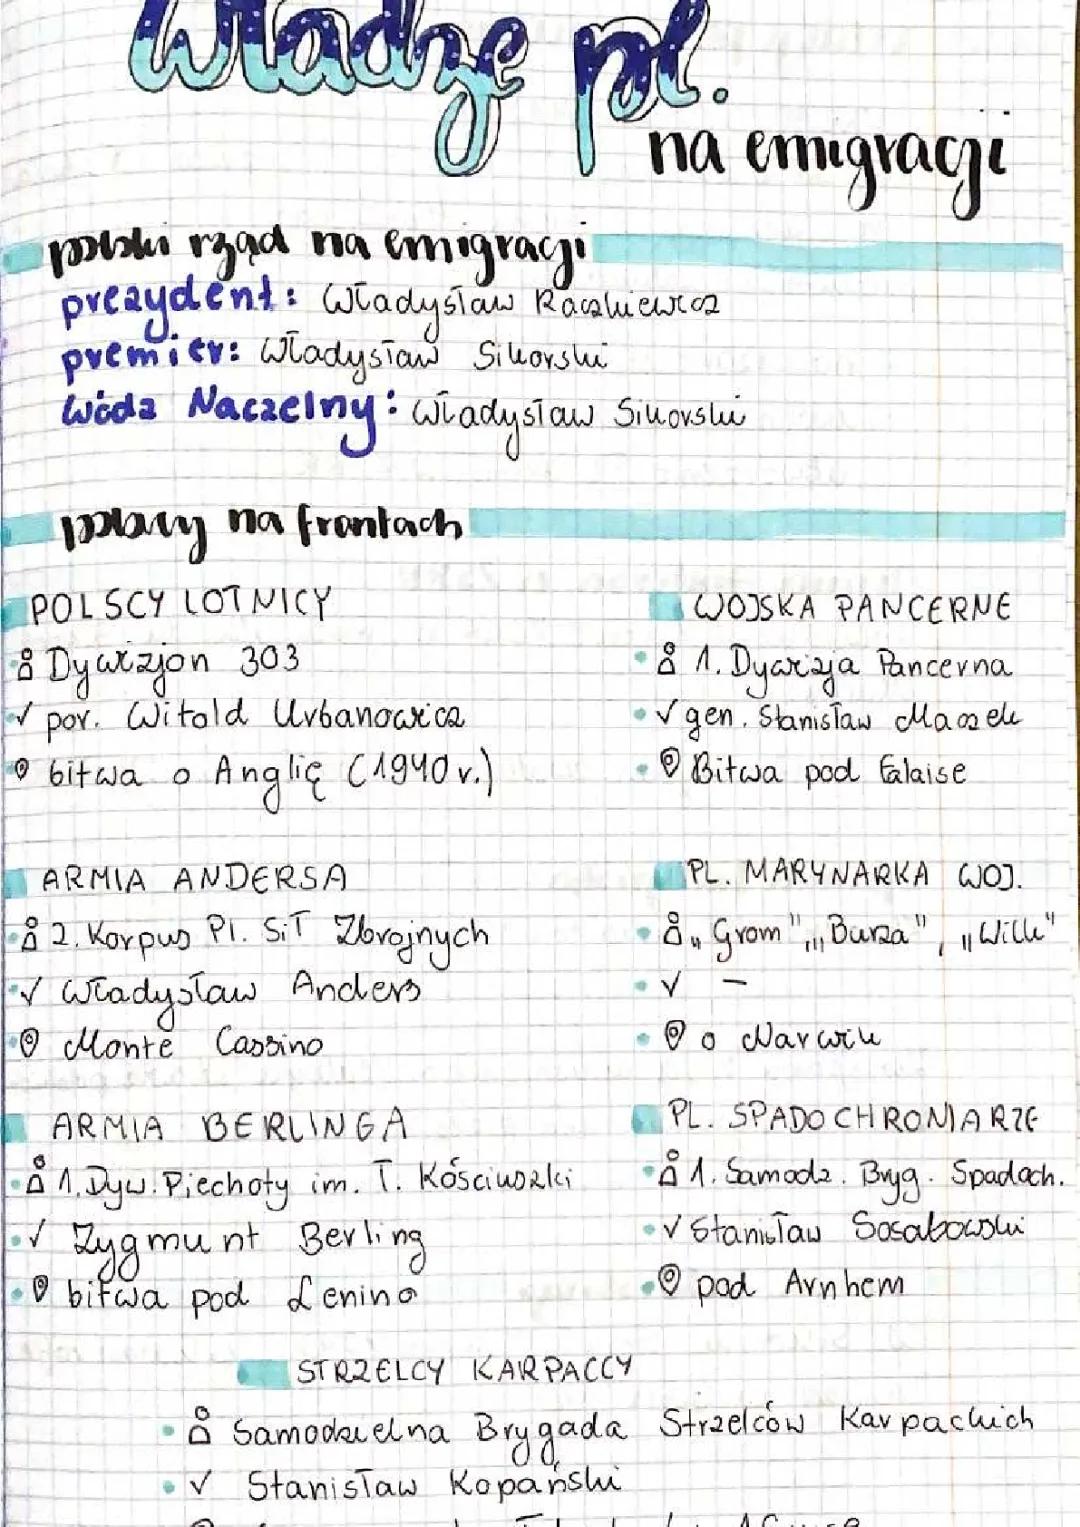 Władze pl.
na emigracji
polski rząd na emigracji
prezydent: Władysław Raczkiewicz
premier: Władysław Sikorski
Wódz Naczelny: Władysław Sikorski
polacy na frontach
POLSCY LOTNICY
Dywizjon 303
✓ por. Witold Urbanowicz
bitwa o Anglię (1940 r.)
WOJSKA PANCERNE
1. Dywizja Pancerna
✓ gen. Stanisław Maczek
Bitwa pod Falaise
ARMIA ANDERSA
2. Korpus Pl. Sił Zbrojnych
✓ Władysław Anders
Monte Cassino
PL. MARYNARKA WOJ.
„Grom", „Burza", „Wilk"
✓ –
o Narwik
ARMIA BERLINGA
1. Dyw. Piechoty im. T. Kościuszki
✓ Zygmunt Berling
bitwa pod Lenino
PL. SPADOCHRONIARZE
1. Samodz. Bryg. Spadoch.
✓ Stanisław Sosabowski
pod Arnhem
STRZELCY KARPACCY
Samodzielna Brygada Strzelców Karpackich
✓ Stanisław Kopański